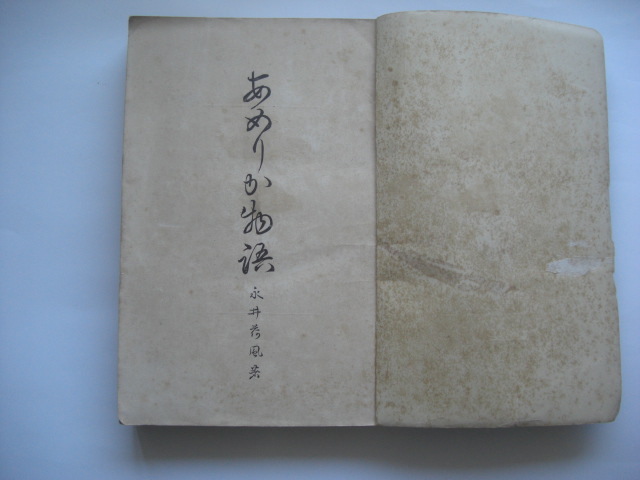 あめりか物語
永井荷風著